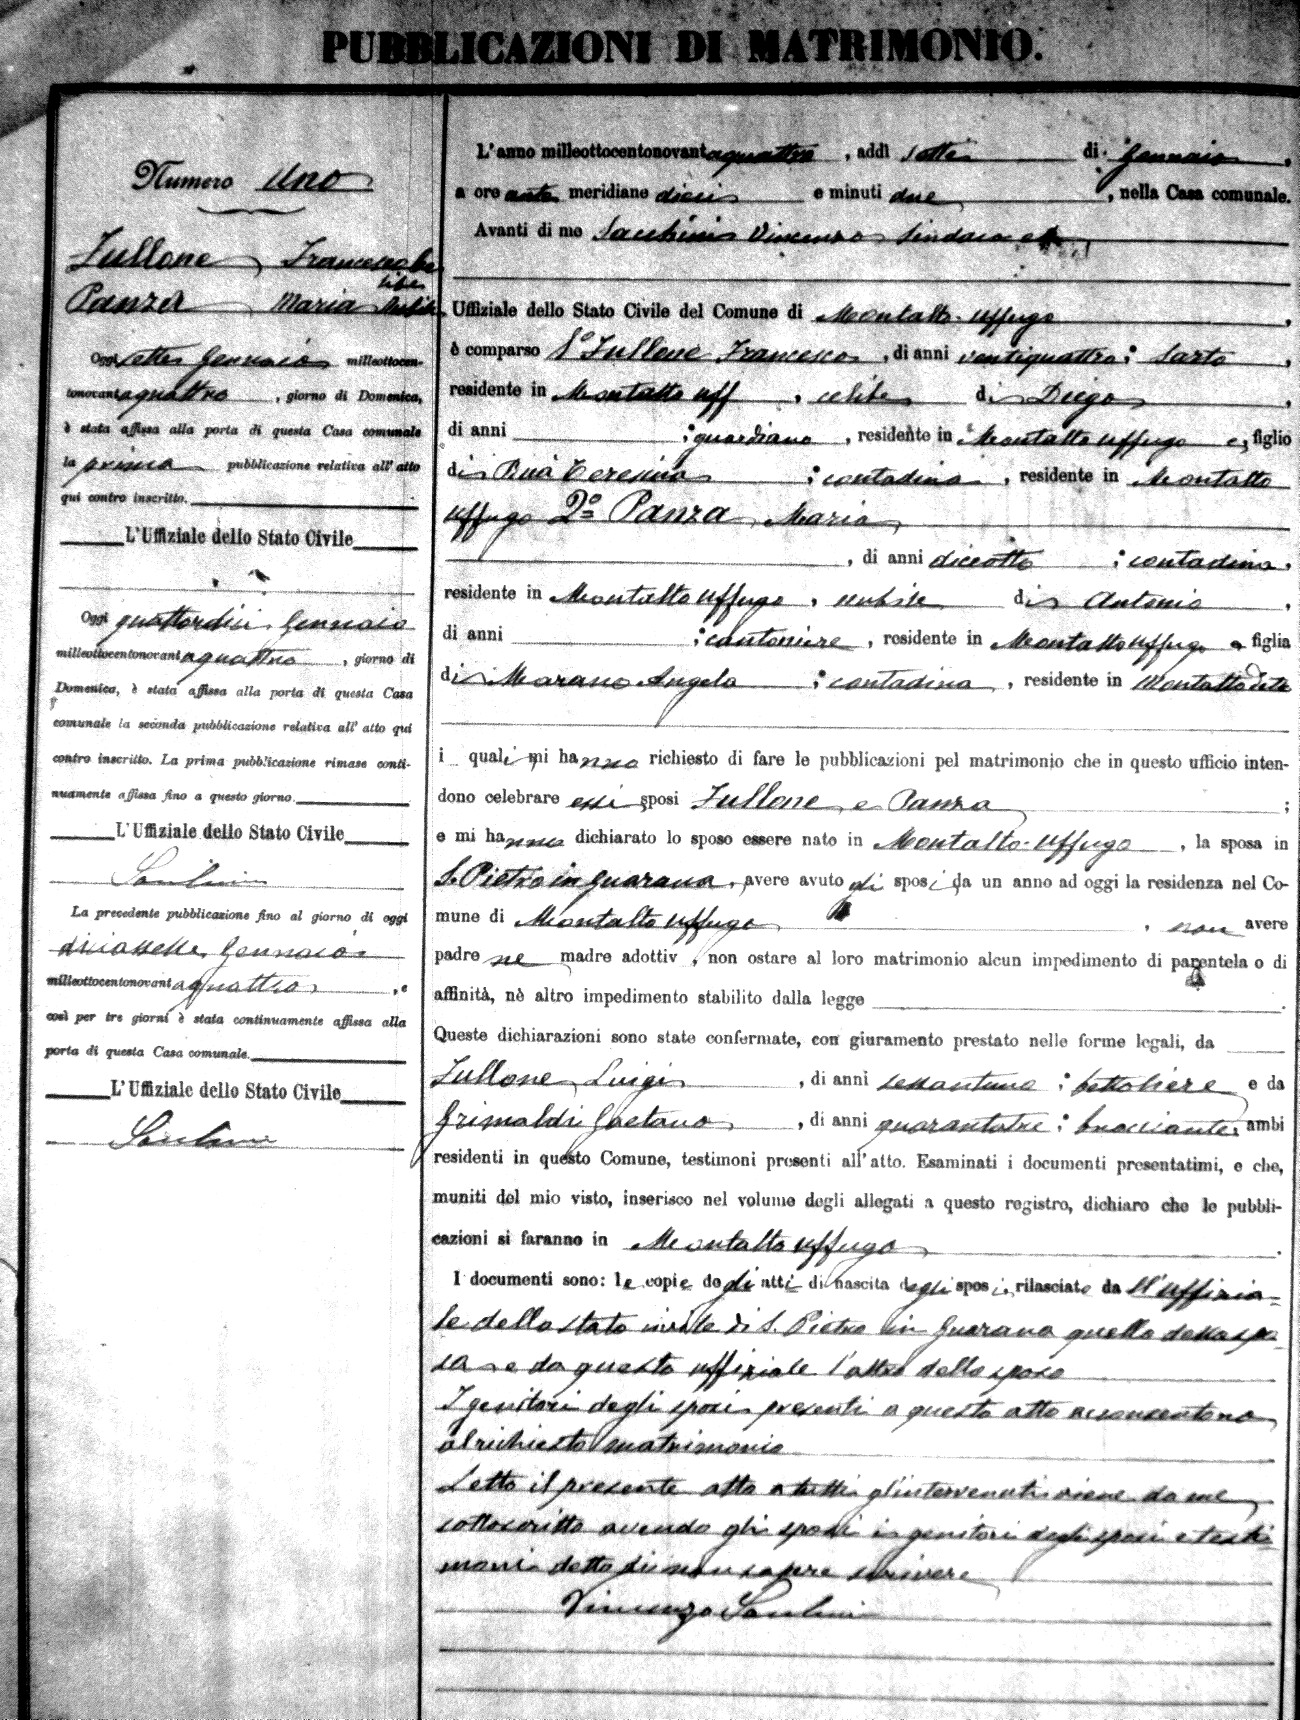 PUBBLICAZIONI DI MATRIMONIO.
Numero Uno
Zullone Francesco celibe
Panza Maria nubile
Oggi sette Gennaio milleottocen-
tonovantaquattro, giorno di Domenica,
è stata affissa alla porta di questa Casa comunale
la prima pubblicazione relativa all'atto
qui contro inscritto.
L'Uffiziale dello Stato Civile
Oggi quattordici Gennaio
milleottocentonovantaquattro, giorno di
Domenica, è stata affissa alla porta di questa Casa
comunale la seconda pubblicazione relativa all'atto qui
contro inscritto. La prima pubblicazione rimase conti-
nuamente affissa fino a questo giorno.
L'Uffiziale dello Stato Civile
La precedente pubblicazione fino al giorno di oggi
diciassette Gennaio
milleottocentonovantaquattro, e
così per tre giorni è stata continuamente affissa alla
porta di questa Casa comunale.
L'Uffiziale dello Stato Civile
L'anno milleottocentonovantaquattro, addì sette di Gennaio,
a ore ante meridiane dieci e minuti due, nella Casa comunale.
Avanti di me Vincenzo Sindaco ed
Uffiziale dello Stato Civile del Comune di Montalto-Uffugo,
è comparso 1° Zullone Francesco, di anni ventiquattro; sarto,
residente in Montalto Uff, celibe di Diego,
di anni ; guardiano, residente in Montalto Uffugo e, figlio
di Buà Teresina ; contadina, residente in Montalto
Uffugo 2° Panza Maria
, di anni diciotto ; contadina,
residente in Montalto Uffugo, nubile di Antonio,
di anni ; cantoniere, residente in Montalto Uffugo e figlia
di Marano Angela ; contadina, residente in Montalto detto
i quali mi hanno richiesto di fare le pubblicazioni pel matrimonio che in questo ufficio inten-
dono celebrare essi sposi Zullone e Panza ;
e mi hanno dichiarato lo sposo essere nato in Montalto-Uffugo, la sposa in
S. Pietro in Guarano, avere avuto gli sposi da un anno ad oggi la residenza nel Co-
mune di Montalto Uffugo, non avere
padre ne madre adottiv, non ostare al loro matrimonio alcun impedimento di parentela o di
affinità, nè altro impedimento stabilito dalla legge .
Queste dichiarazioni sono state confermate, con giuramento prestato nelle forme legali, da
Zullone Luigi, di anni sessantuno ; bettoliere e da
Grimaldi Gaetano, di anni quarantatre ; bracciante, ambi
residenti in questo Comune, testimoni presenti all'atto. Esaminati i documenti presentatimi, e che,
muniti del mio visto, inserisco nel volume degli allegati a questo registro, dichiaro che le pubbli-
cazioni si faranno in Montalto Uffugo.
I documenti sono: le copie degli atti di nascita degli sposi, rilasciate da ll'uffizia-
le dello stato civile di S. Pietro in Guarano quello della spo-
sa e da questo uffiziale l'altro dello sposo
I genitori degli sposi presenti a questo atto acconsentono
al richiesto matrimonio
Letto il presente atto a tutti gl'intervenuti viene da me
sottoscritto avendo gli sposi i genitori degli sposi e testi-
moni detto di non sapere scrivere
Vincenzo